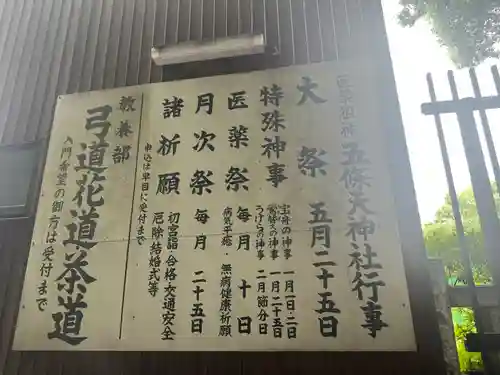 医薬祖神 五條天神社行事
大祭 五月二十五日
特殊神事
宝舟の神事 一月一日・二日
鷽替えの神事 一月二十五日
うけらの神事 二月節分日
医薬祭 毎月十日
病気平癒・無病健康祈願
月次祭 毎月二十五日
諸祈願
初宮詣 合格 交通安全
厄除 結婚式等
申込は早目に受付まで
教養部
弓道 花道 茶道
入門希望の御方は受付まで